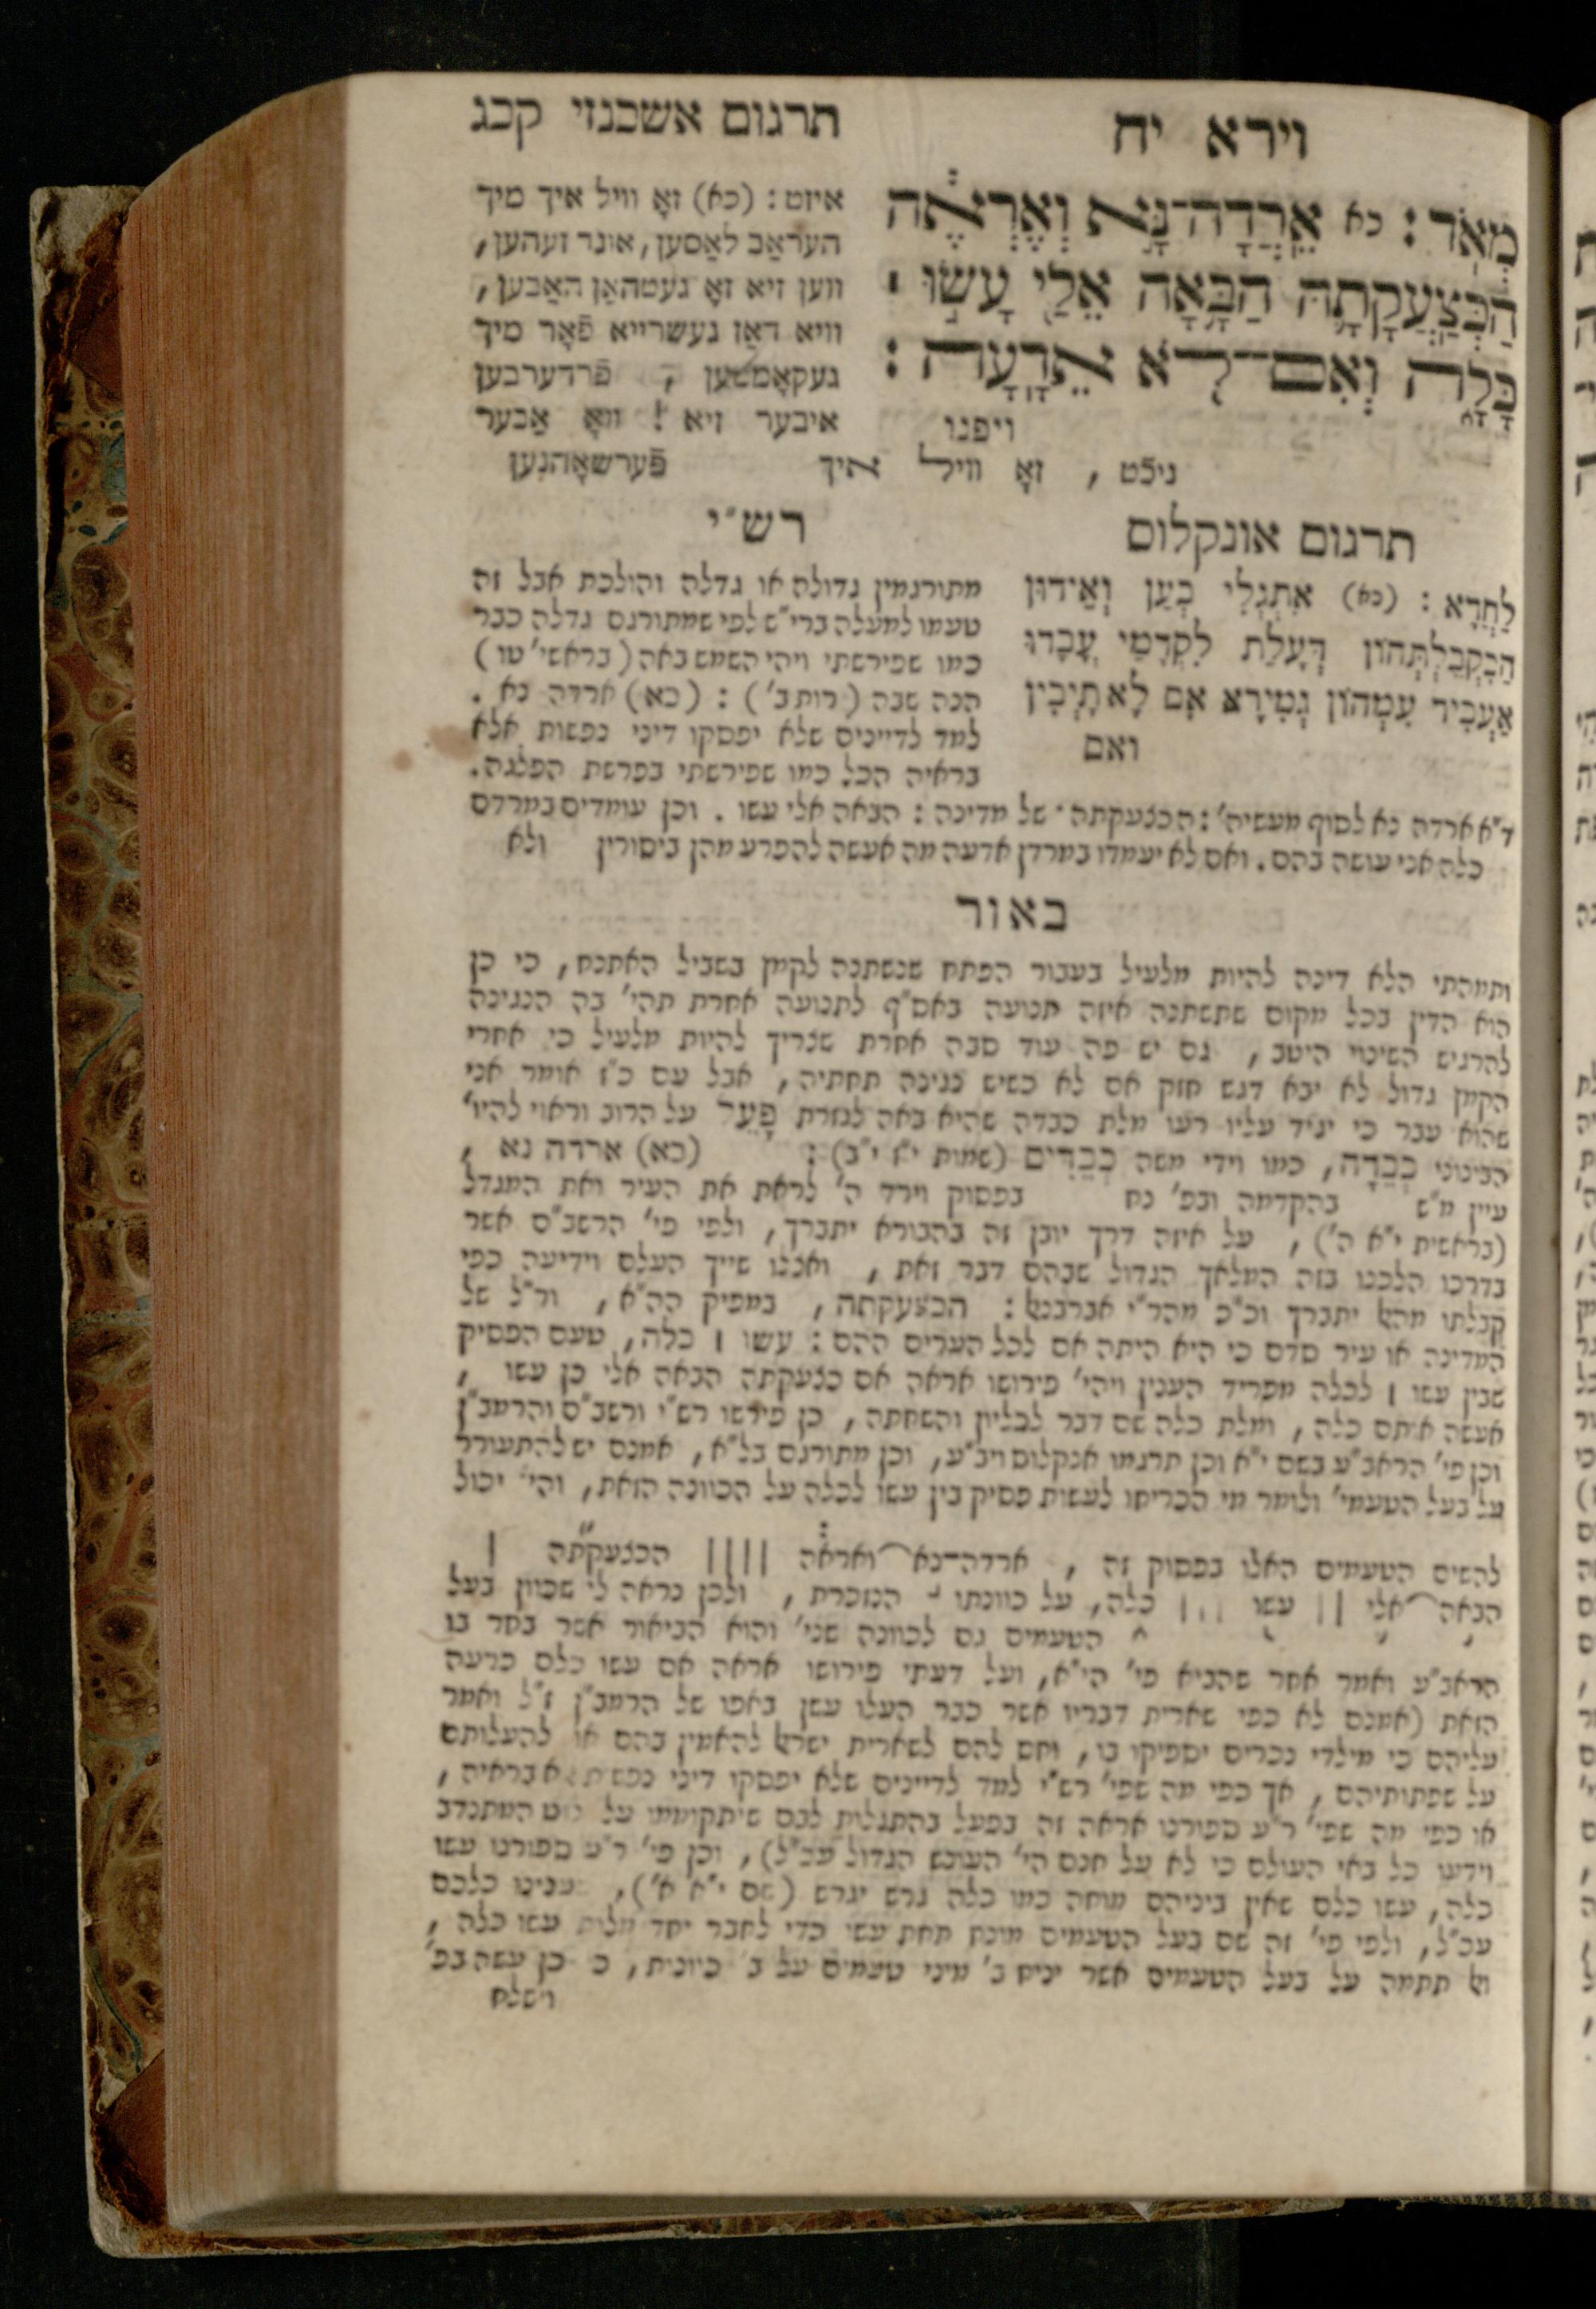 וירא יח
תרגום אשכנזי קכג
מְאֹֽד׃ כא אֵֽרְדָה־נָּ֣א וְאֶרְאֶ֔ה
הַכְּצַעֲקָתָ֛הּ הַבָּ֥אָה אֵלַ֖י עָשׂ֣וּ ׀
כָּלָ֑ה וְאִם־לֹ֖א אֵדָֽעָה׃
ויפנו
איזט : (כא) זאָ וויל איך מיך
העראַב לאַסען, אונד זעהען,
ווען זיא זאָ געטהאַן האַבען,
וויא דאַז געשרייא פֿאָר מיך
געקאָממען , פֿרדערבען
איבער זיא ! וואָ אַבער
ניכֿט , זאָ וויל איך פֿערשאָהנען
תרגום אונקלוס
לַחֲדָא : (כא) אִתְגְלֵי כְעַן וְאֵידוּן
הַכִקְבִלְתְּהוֹן דְּעָלַת לִקְדָמַי עֲבָדוּ
אַעְבֵיד עִמְּהוֹן גְּמֵירָא אִם לָא תָיְבִין
ואם
רש״י
מתורגמין גדולה או גדלה והולכת אבל זה
טעמו למעלה ברי״ש לפי שמתורגם גדלה כבר
כמו שפירשתי ויהי השמש באה (בראשי׳ טו)
הנה שבה (רות ב׳) : (כא) ארדה נא .
למד לדיינים שלא יפסקו דיני נפשות אלא
בראיה הכל כמו שפירשתי בפרשת הפלגה.
ד״א ארדה נא לסוף מעשיה׳ : הכצעקתה · של מדינה : הבאה אלי עשו . וכן עומדים במרדם
כלה אני עושה בהם. ואם לא יעמדו במרדן אדעה מה אעשה להפרע מהן ביסורין ולא
באור
ותמהתי הלא דינה להיות מלעיל בעבור הפתח שנשתנה לקמץ בשביל האתנח, כי כן
הוא הדין בכל מקום שתשתנה איזה תנועה באס״ף לתנועה אחרת תהי׳ בה הנגינה
להרגיש השינוי היטב, גם יש פה עוד סבה אחרת שצריך להיות מלעיל כי אחרי
הקמץ גדול לא יבא דגש חזק אם לא כשיש נגינה תחתיה, אבל עם כ״ז אומר אני
שהוא עבר כי יגיד עליו רעו מלת כבדה שהיא באה לגזרת פָּעֵל על הרוב וראוי להיו׳
הבינוני כְבֵדָה, כמו וידי משה כְּבֵדִים (שמות י״ז י״ב) : (כא) ארדה נא ,
עיין מ״ש בהקדמה ובפ׳ נח בפסוק וירד ה׳ לראת את העיר ואת המגדל
(בראשית י״א ה׳) , על איזה דרך יובן זה בהבורא יתברך, ולפי פי׳ הרשב״ם אשר
בדרכו הלכנו בזה המלאך הגדול שבהם דבר זאת , ואצלו שייך העלם וידיעה כפי
קבלתו מהאל יתברך וכ״כ מהר״י אברבנאל : הכצעקתה, במפיק הה״א, ור״ל של
המדינה או עיר סדם כי היא היתה אם לכל הערים ההם : עשו ׀ כלה, טעם הפסיק
שבין עשו ׀ לכלה מפריד הענין ויהי׳ פירושו אראה אם כצעקתה הבאה אלי כן עשו ,
אעשה אתם כלה, ומלת כלה שם דבר לכליון והשחתה, כן פירשו רש״י ורשב״ם והרמב״ן
וכן פי׳ הראב״ע בשם י״א וכן תרגמו אנקלוס ויב״ע, וכן מתורגם בל״א, אמנם יש להתעורר
על בעל הטעמי׳ ולומר מי הכריחו לעשות פסיק בין עשו לכלה על הכוונה הזאת, והי׳ יכול
להשים הטעמים האלו בפסוק זה , ארדה־נא ואראה |||| הכצעקתה |
הבאה אלי || עשו ||| כלה, על כוונתו הנזכרת , ולכן נראה לי שכוון בעל
הטעמים גם לכוונה שני׳ והוא הביאור אשר בחר בו
הראב״ע ואמר אחר שהביא פי׳ הי״א, ועל דעתי פירושו אראה אם עשו כלם כרעה
הזאת (אמנם לא כפי שארית דבריו אשר כבר העלו עשן באפו של הרמב״ן ז״ל ואמר
עליהם כי מילדי נכרים יספיקו בו, וחס להם לשארית ישראל להאמין בהם או להעלותם
על שפתותיהם , אך כפי מה שפי׳ רש״י למד לדיינים שלא יפסקו דיני נפשות אלא בראיה,
או כפי מה שפי׳ ר״ע ספורנו אראה זה בפעל בהתגלות לבם שיתקוממו על המתנדב
וידעו כל באי העולם כי לא על חנם הי׳ העונש הגדול עכ״ל), וכן פי׳ ר״ע ספורנו עשו
כלה, עשו כלם שאין ביניהם מוחה כמו כלה גרש יגרש (שם י״א א׳), ענינו כלכם
עכ״ל, ולפי פי׳ זה שם בעל הטעמים מונח תחת עשו כדי לחבר יחד מלות עשו כלה,
ואל תתמה על בעל הטעמים אשר יניח ב׳ מיני טעמים על ב׳ כיונית, כי כן עשה בפ׳
וישלח